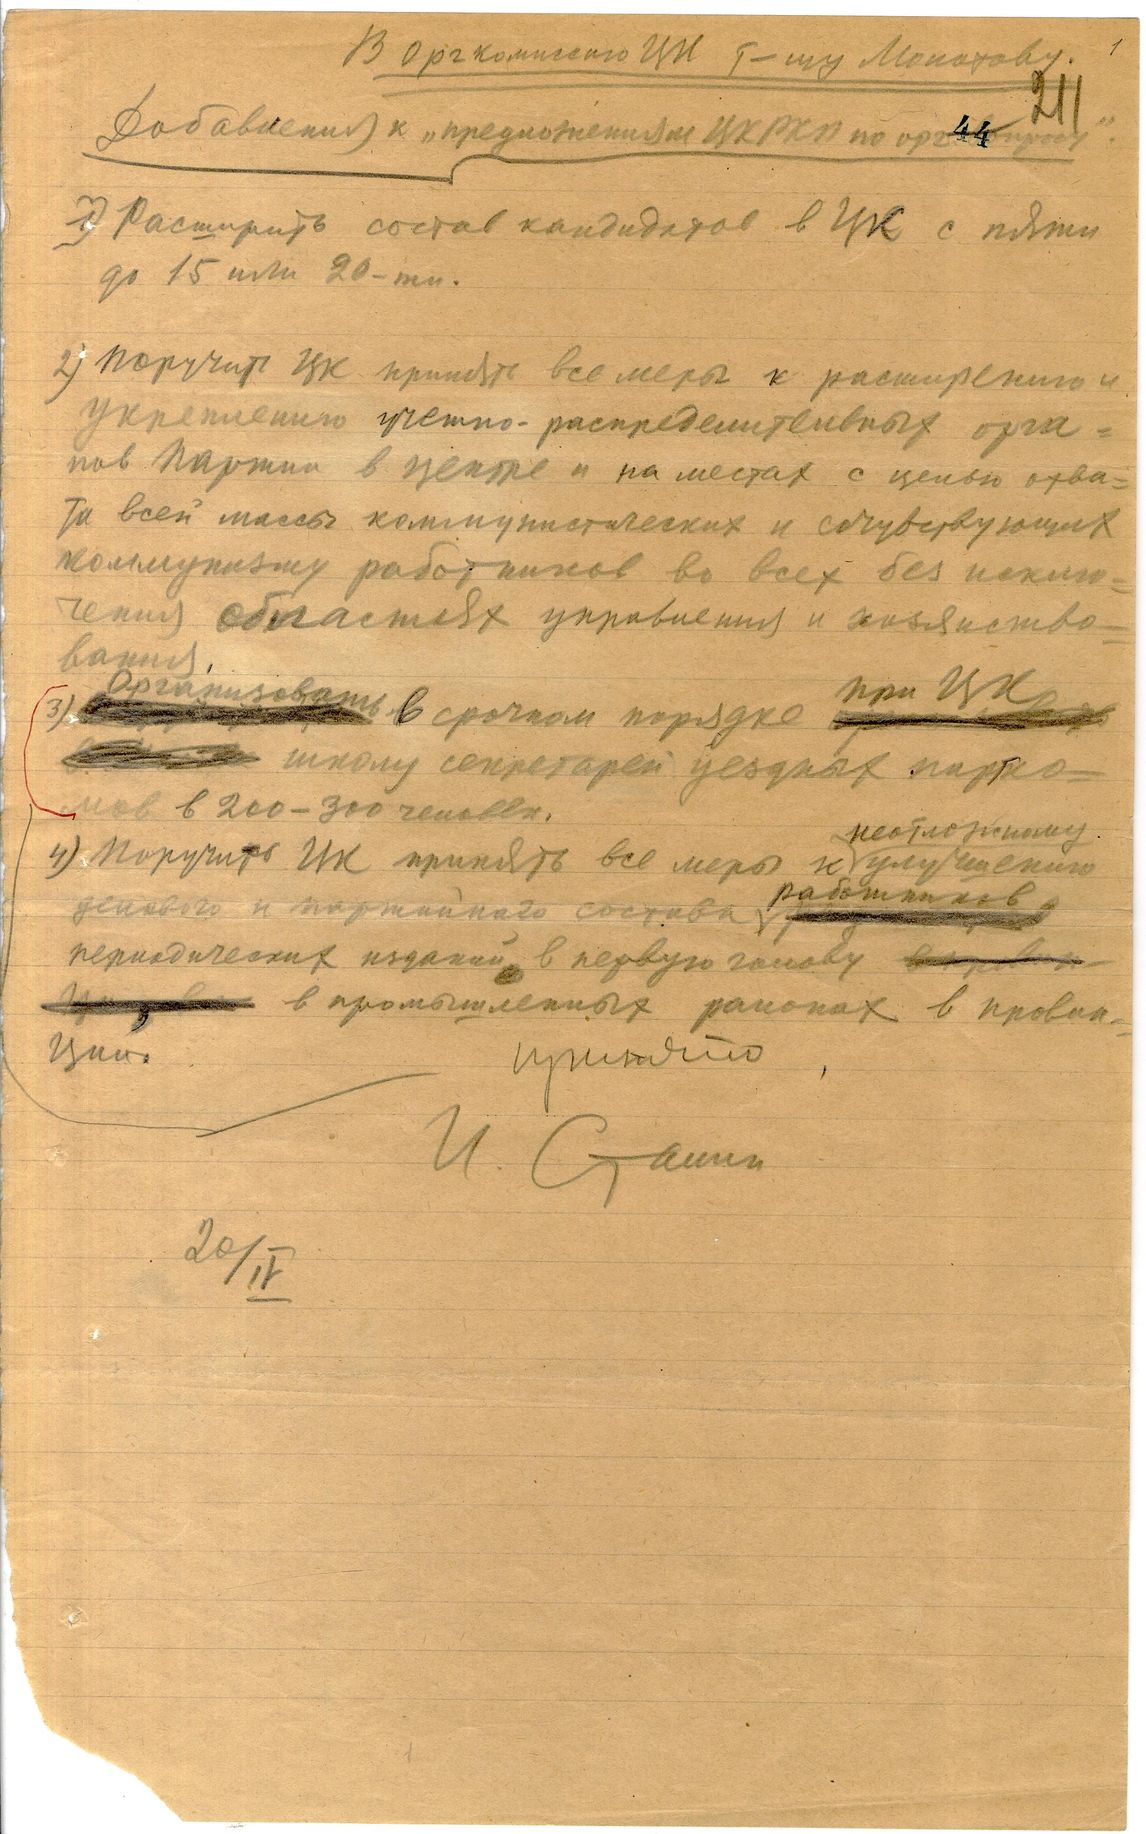 1
В Оргкомиссию ЦК т-щу Молотову.
211
Добавления к „предложениям ЦК РКП по орг. вопросу".
44
1) Расширить состав кандидатов в ЦК с пяти
до 15 или 20-ти.
2) Поручить ЦК принять все меры к расширению и
укреплению учетно-распределительных орга=
нов Партии в центре и на местах с целью охва=
та всей массы коммунистических и сочувствующих
коммунизму работников во всех без исклю=
чения областях управления и хозяйство=
вания.
3) Организовать в срочном порядке при ЦК
школу секретарей уездных парко=
мов в 200–300 человек.
4) Поручить ЦК принять все меры к неотложному улучшению
делового и партийного состава работников
периодических изданий, в первую голову
в промышленных районах в провин=
ции.
принято
И. Сталин
20/IV
1